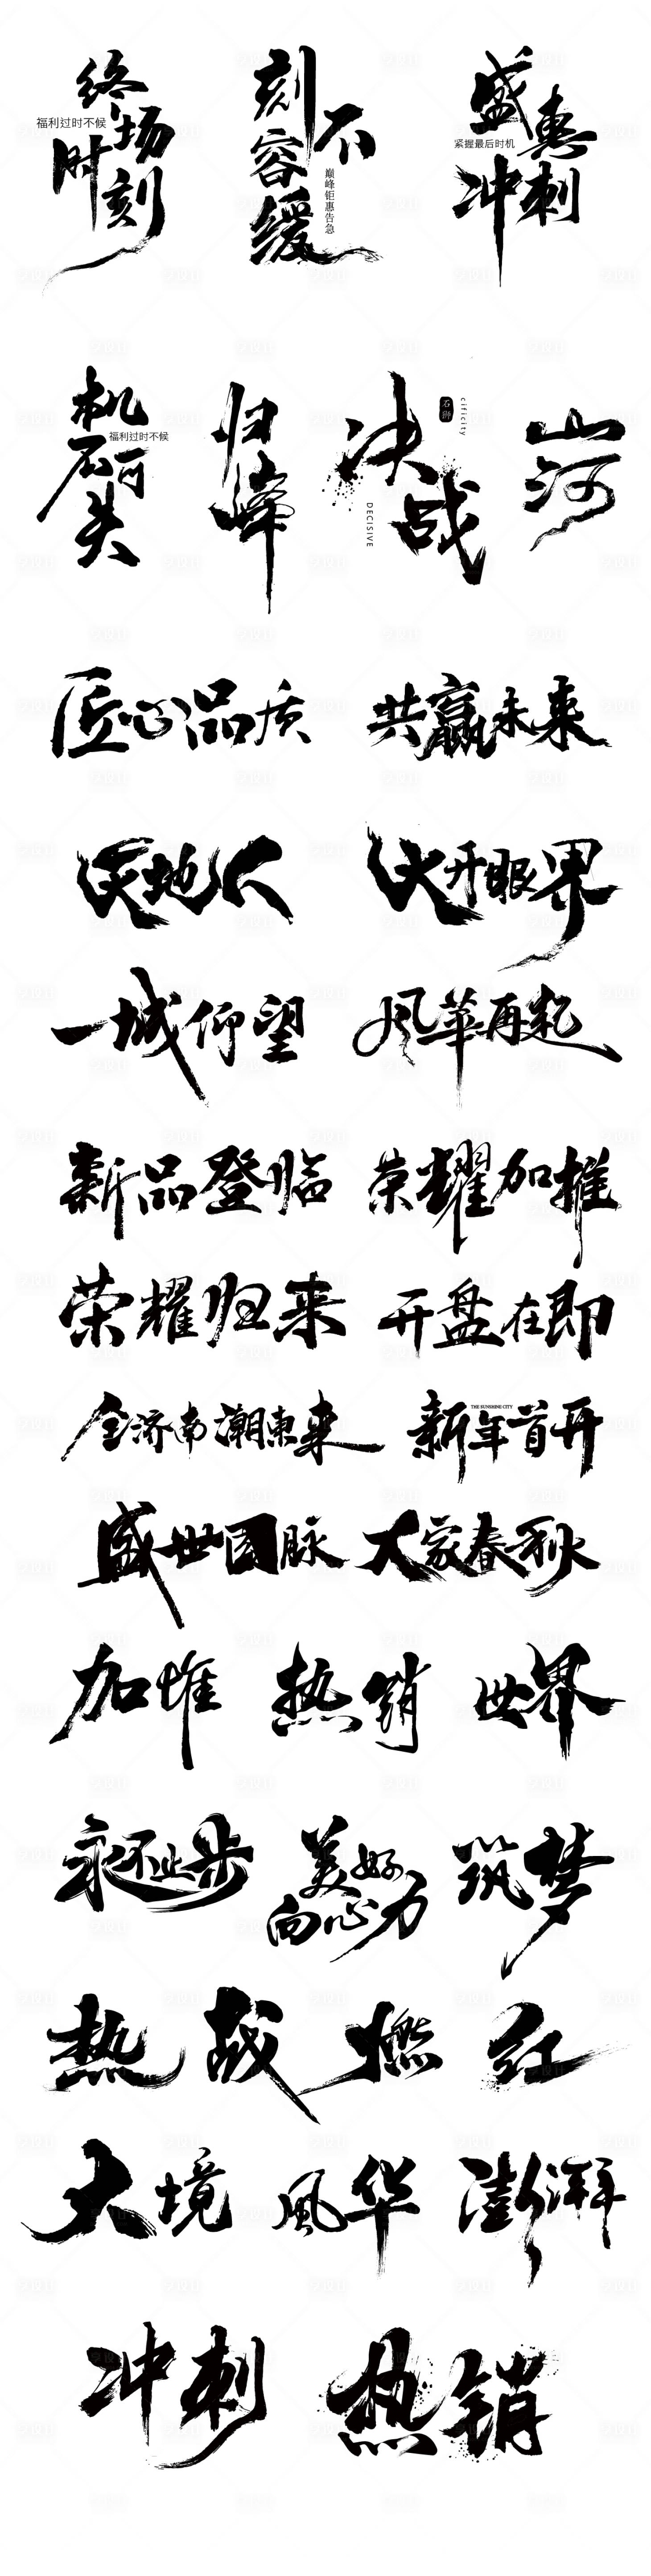 终场
时刻
福利过时不候
刻不
容缓
巅峰钜惠告急
盛惠
冲刺
紧握最后时机
机不可失
福利过时不候
归
决战
DECISIVE
石狮
cificity
山河
匠心品质
共赢未来
天地人
大开眼界
一城仰望
风华再起
新品登临
荣耀加推
荣耀归来
开盘在即
全济南潮东来
新年首开
THE SUNSHINE CITY
盛世国脉
大家春秋
加推
热销
世界
永不止步
美好
向心力
筑梦
热战
燃
红
大境
風华
澎湃
冲刺
热销